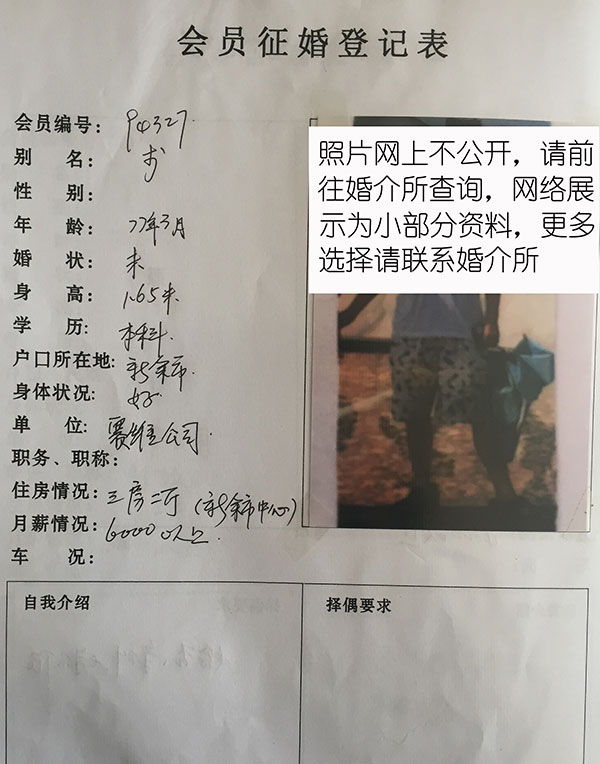 会员征婚登记表
会员编号: 94327
别 名:
性 别:
年 龄: 77年3月
婚 状: 未
身 高: 1.65米
学 历: 本科
户口所在地: 新余市
身体状况: 好
单 位: 赛维公司
职务、职称:
住房情况: 三房二厅(新余市中心)
月薪情况: 6000以上
车 况:
照片网上不公开,请前
往婚介所查询,网络展
示为小部分资料,更多
选择请联系婚介所
自我介绍
择偶要求